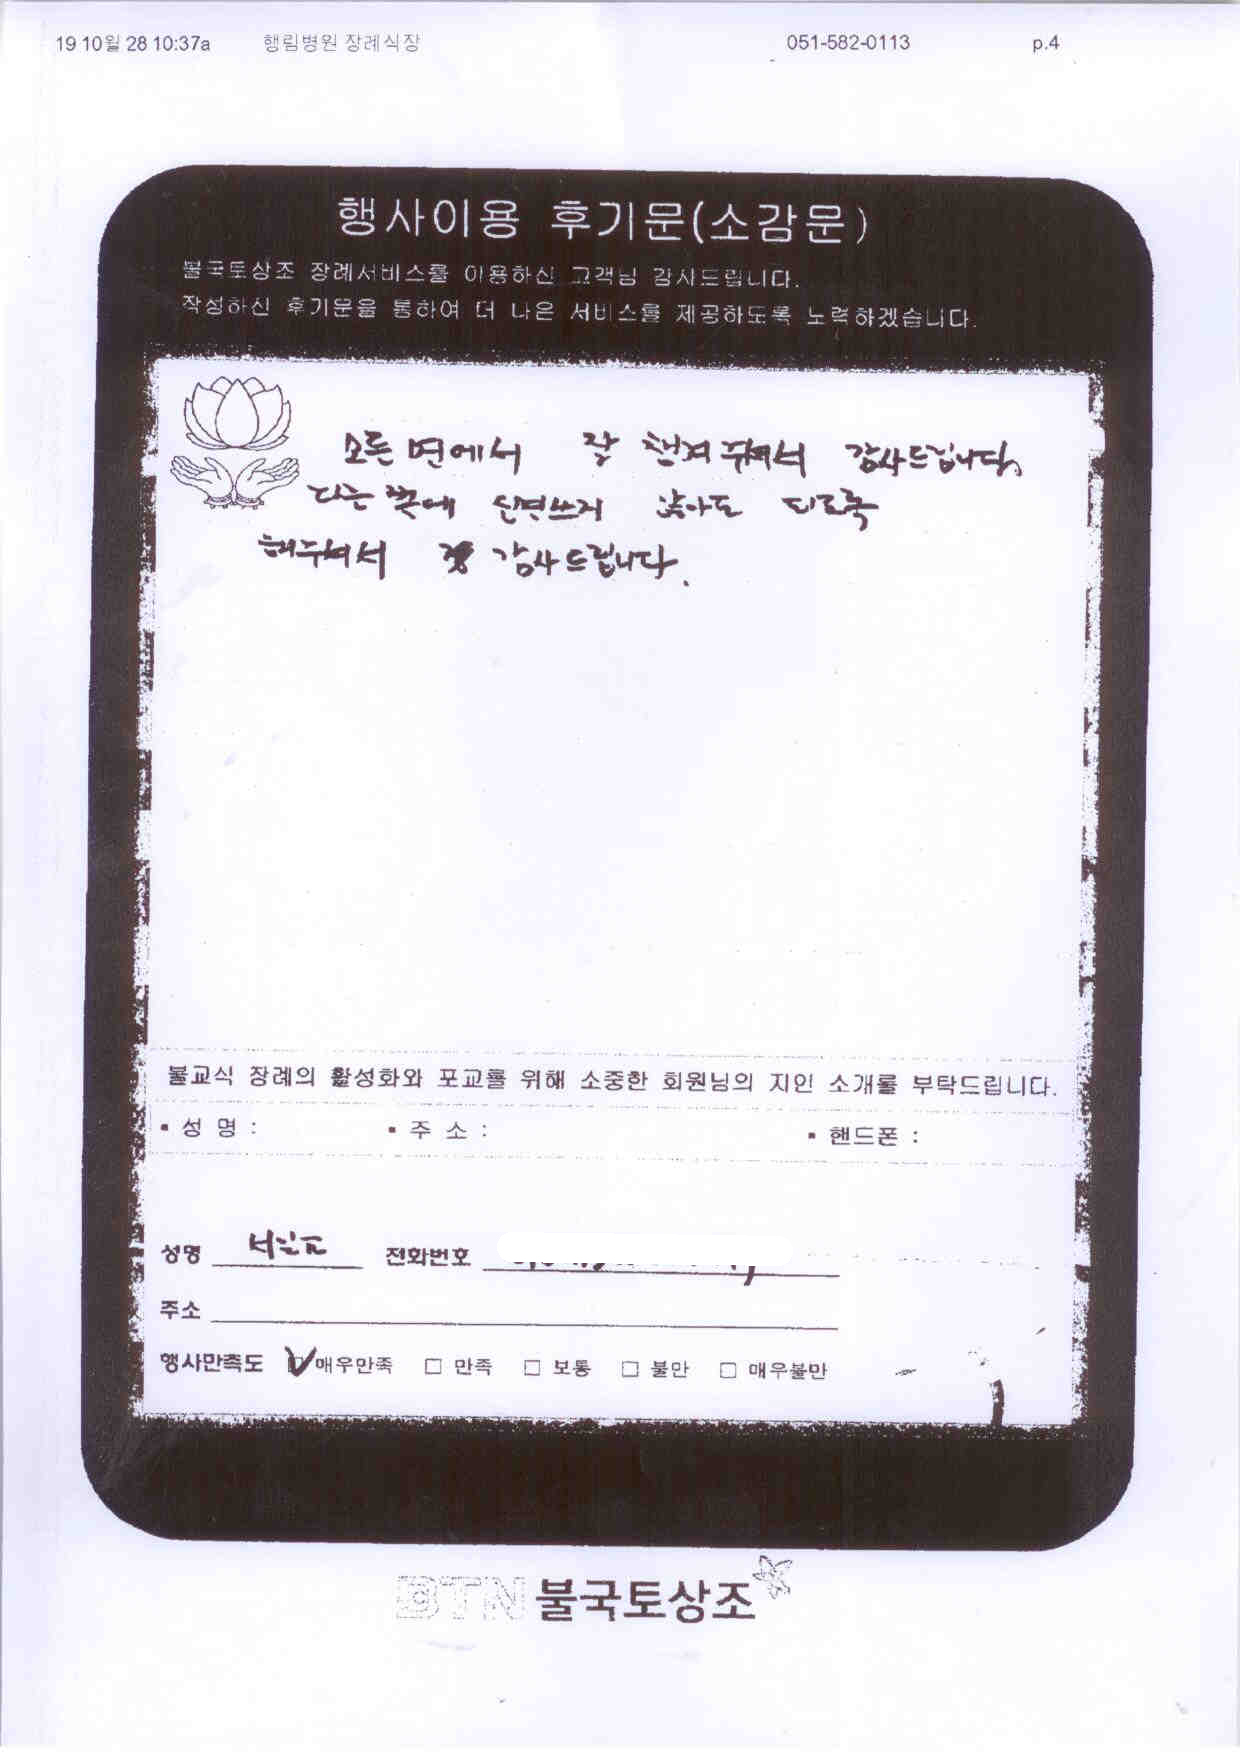 19 10월 28 10:37a 행림병원 장례식장 051-582-0113 p.4
행사이용 후기문(소감문)
불국토상조 장례서비스를 이용하신 고객님 감사드립니다.
작성하신 후기문을 통하여 더 나은 서비스를 제공하도록 노력하겠습니다.
모든 면에서 잘 챙겨주셔서 감사드립니다.
다른 쪽에 신경쓰지 않아도 되도록
해주셔서 감사드립니다.
불교식 장례의 활성화와 포교를 위해 소중한 회원님의 지인 소개를 부탁드립니다.
▪ 성 명 : ▪ 주 소 : ▪ 핸드폰 :
성명 전화번호
주소
행사만족도 ☑ 매우만족 □ 만족 □ 보통 □ 불만 □ 매우불만
BTN 불국토상조